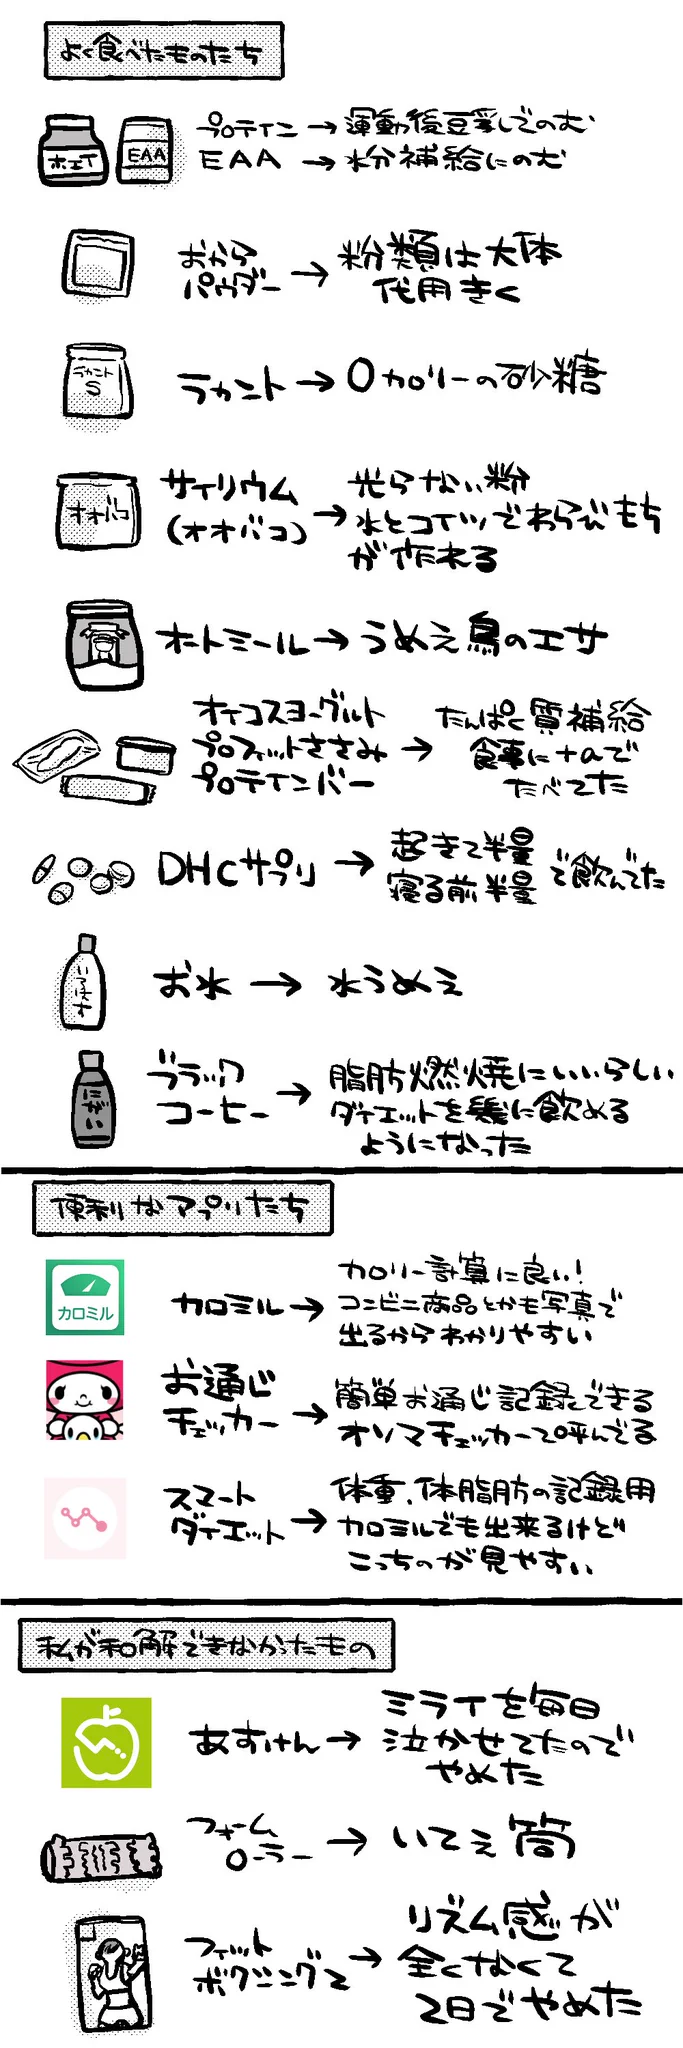 よく食べたものたち
ホエイ
EAA
プロテイン→運動後豆乳でのむ
EAA→水分補給にのむ
おから
パウダー→粉類は大体
代用きく
ラカント
S
ラカント→0カロリーの砂糖
オオバコ
サイリウム
(オオバコ)→光らない粉
水とコイツでわらびもち
が作れる
オートミール→うめえ鳥のエサ
オイコスヨーグルト
プロフィットささみ
プロテインバー
→たんぱく質補給
食事に+αで
たべてた
DHCサプリ→起きて半量
寝る前半量
で飲んでた
いろはす
お水→水うめえ
にがい
ブラック
コーヒー→脂肪燃焼にいいらしい
ダイエットを機に飲める
ようになった
便利なアプリたち
カロミル
カロミル→カロリー計算に良い!
コンビニ商品とかも写真で
出るからわかりやすい
お通じ
チェッカー→簡単お通じ記録できる
オソマチェッカーて呼んでる
スマート
ダイエット→体重、体脂肪の記録用
カロミルでも出来るけど
こっちのが見やすい
私が和解できなかったもの
あすけん→ミライを毎日
泣かせてたので
やめた
フォーム
ローラー→いてえ筒
フィット
ボクシング2→リズム感が
全くなくて
2日でやめた